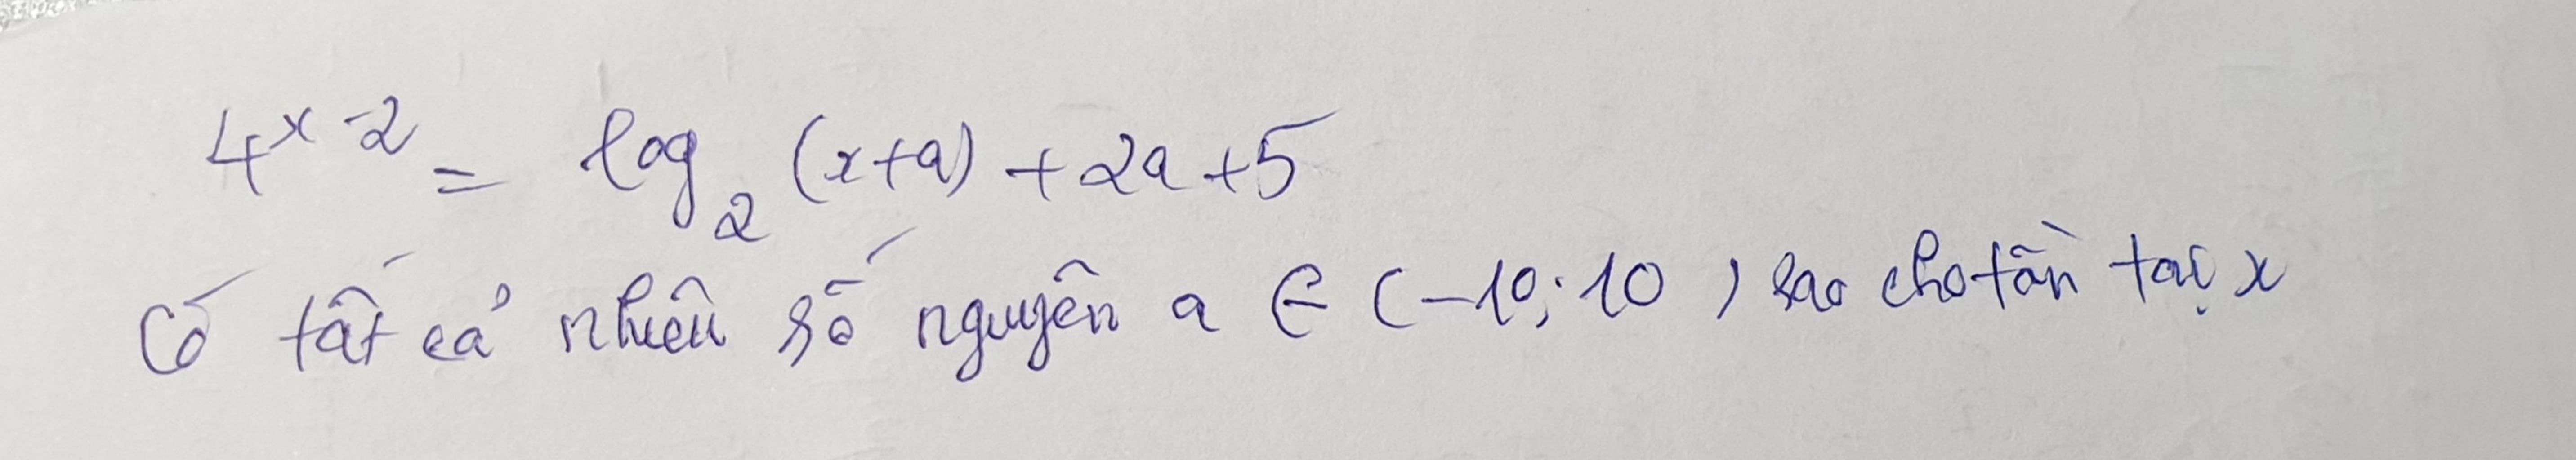 4^{x-2} = log_2 (x+a) + 2a + 5
Có tất cả nhiêu số nguyên a ∈ (-10; 10) sao cho tồn tại x